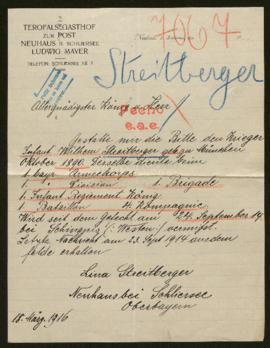 TEROFALSGASTHOF
ZUR POST
NEUHAUS B. SCHLIERSEE
LUDWIG MAYER
TELEFON: SCHLIERSEE NR. 7
7067
Streitberger
Allergnädigster König u. Herr
Pecht
e.a.e.
Gestatte mir die Bitte den Krieger
Infant Wilhelm Streitberger geb. zu München
Oktober 1890. Derselbe diente beim
1. bayr. Armeekorps
1. Division 1. Brigade
1. Infant Regiment König
1. Bataillon 4. Kompagnie
Wird seit dem Gefecht am 24. September 14
bei (Westen) vermißt.
Letzte Nachricht am 23. Sept 1914 aus dem
Felde erhalten
Lina Streitberger
Neuhaus bei Schliersee
Oberbayern
18. März 1916